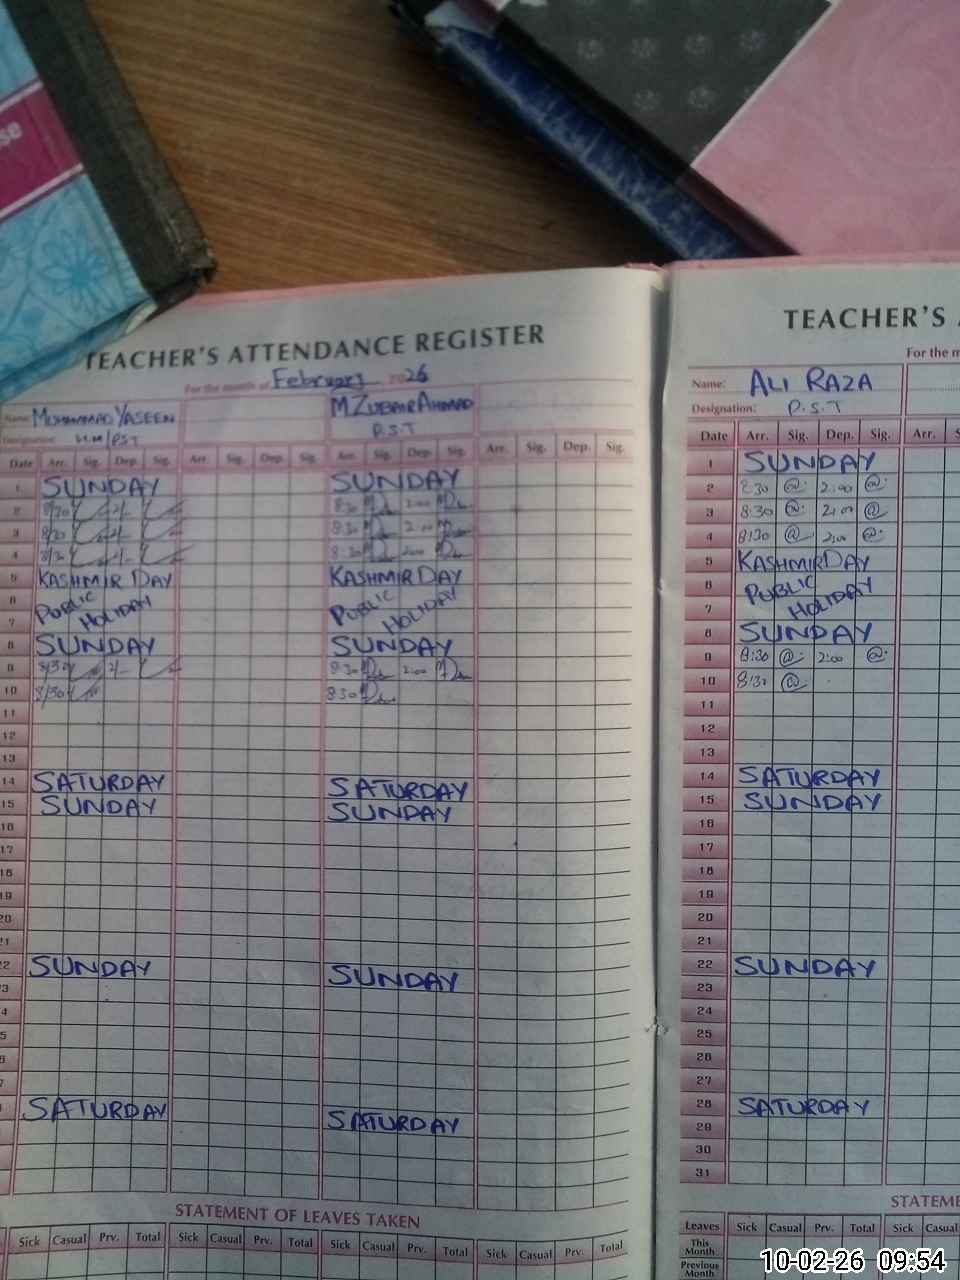 se
TEACHER'S ATTENDANCE REGISTER
For the month of February 2026
Name: MUHAMMAD YASEEN
Designation: H.M/PST
M ZUBAIR AHMAD
P.S.T
Date Arr. Sig. Dep. Sig. Arr. Sig. Dep. Sig. Arr. Sig. Dep. Sig. Arr. Sig. Dep. Sig.
1 SUNDAY SUNDAY
2 8/30 2/- 8:30 2:00
3 8/30 2/- 8:30 2:00
4 8/30 2/- 8:30 2:00
5 KASHMIR DAY KASHMIR DAY
6 PUBLIC PUBLIC
7 HOLIDAY HOLIDAY
8 SUNDAY SUNDAY
9 8/30 2/- 8:30 2:00
10 8/30 8:30
11
12
13
14 SATURDAY SATURDAY
15 SUNDAY SUNDAY
16
17
18
19
20
21
22 SUNDAY SUNDAY
3
4
5
6
7
SATURDAY SATURDAY
STATEMENT OF LEAVES TAKEN
Sick Casual Prv. Total Sick Casual Prv. Total Sick Casual Prv. Total Sick Casual Prv. Total
TEACHER'S
For the m
Name: ALI RAZA
Designation: P.S.T
Date Arr. Sig. Dep. Sig. Arr. S
1 SUNDAY
2 8:30 2:00
3 8:30 2:00
4 8:30 2:00
5 KASHMIR DAY
6 PUBLIC
7 HOLIDAY
8 SUNDAY
9 8:30 2:00
10 8:30
11
12
13
14 SATURDAY
15 SUNDAY
16
17
18
19
20
21
22 SUNDAY
23
24
25
26
27
28 SATURDAY
29
30
31
STATEME
Leaves Sick Casual Prv. Total Sick Casual
This Month
Previous Month
10-02-26 09:54